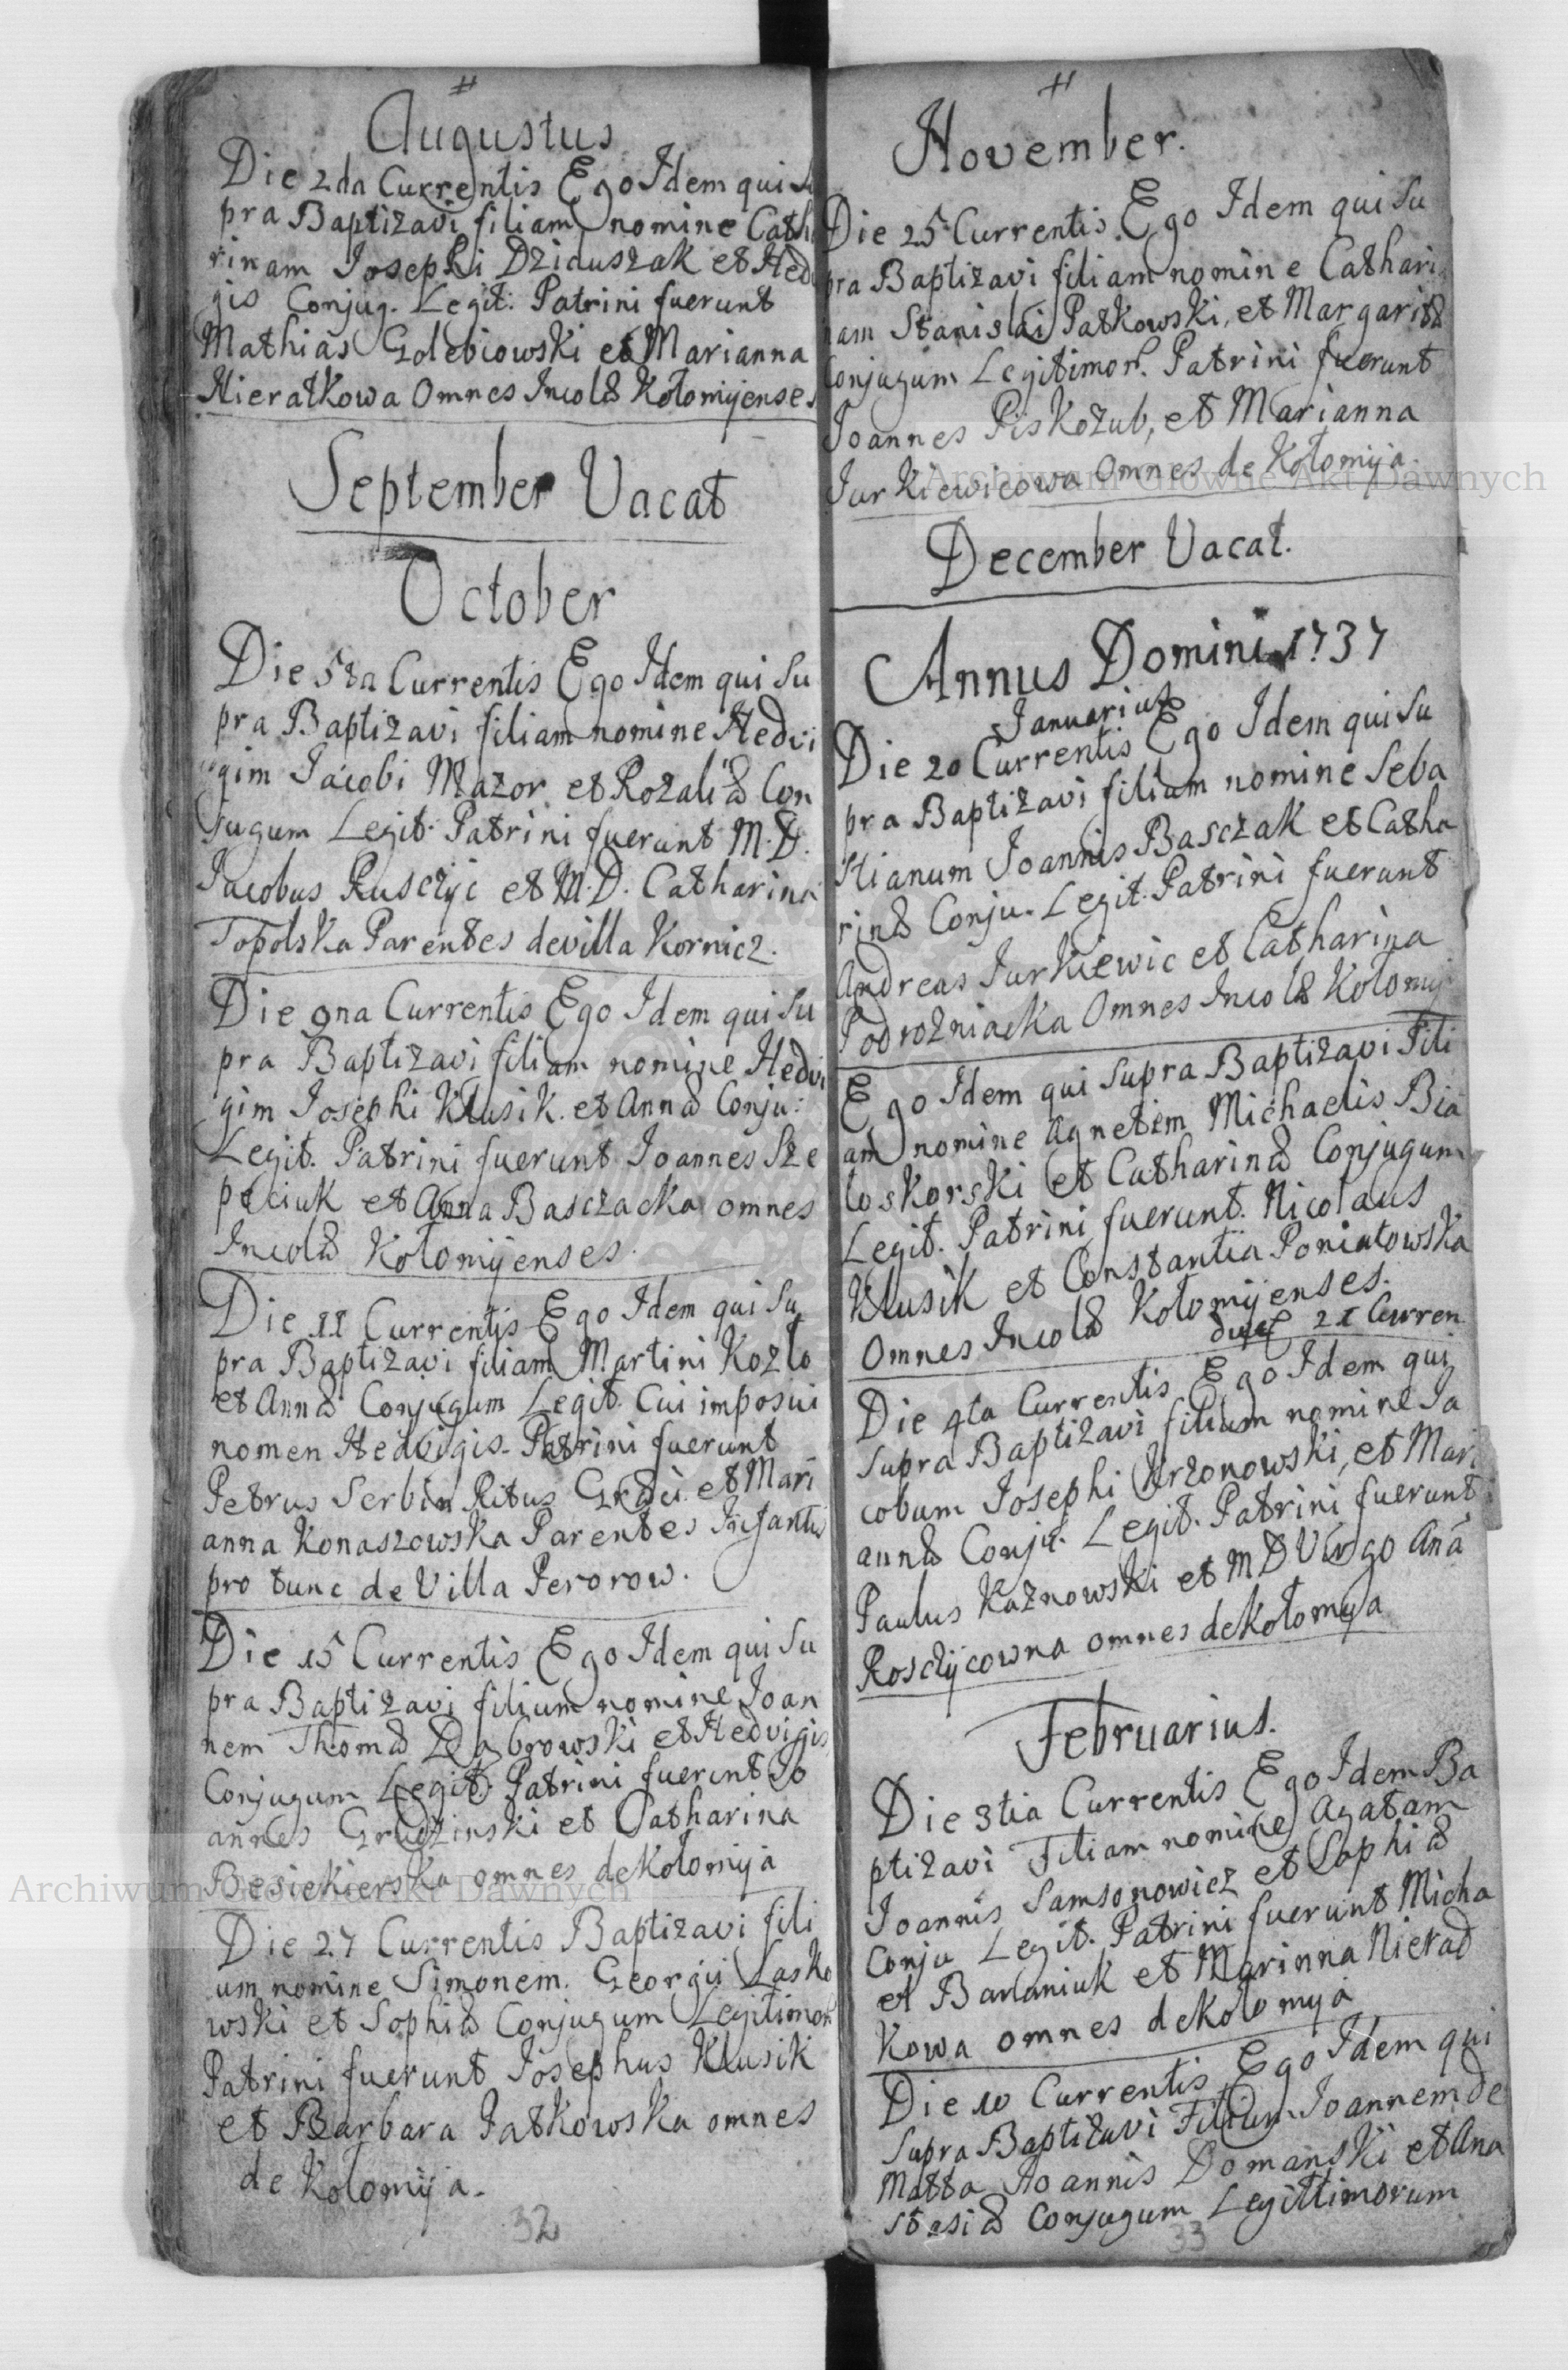 Augustus
Die 2da Currentis Ego Idem qui Su
pra Baptizavi filiam nomine Catha
rinam Josephi Dziduszak et Hedvi
gis Conjug. Legit: Patrini fuerunt
Mathias Golebiowski et Marianna
Nieratkowa Omnes Incolæ Kołomyjenses
September Vacat
October
Die 5ta Currentis Ego Idem qui Su
pra Baptizavi filiam nomine Hedvi
gim Jacobi Mazor et Rozaliæ Con
jugum Legit. Patrini fuerunt M.D.
Jacobus Rusczyc et M.D. Catharina
Topolska Parentes de villa Kornicz.
Die 9na Currentis Ego Idem qui Su
pra Baptizavi filiam nomine Hedvi
gim Josephi Klusik. et Annæ Conju:
Legit. Patrini fuerunt Joannes Sze
peciuk et Anna Basczacka omnes
Incolæ Kołomyjenses.
Die 11 Currentis Ego Idem qui Su
pra Baptizavi filiam Martini Kozło
et Annæ Conjugum Legit. Cui imposui
nomen Hedvigis. Patrini fuerunt
Petrus Serbin Ritus Græci. et Mari
anna Konaszowska Parentes Infantis
pro tunc de Villa Perorow.
Die 15 Currentis Ego Idem qui Su
pra Baptizavi filium nomine Joan
nem Thomæ Dąbrowski et Hedvigis
Conjugum Legit: Patrini fuerunt Jo
annes Grudzinski et Catharina
Besiekierska omnes de Kołomyja
Die 27 Currentis Baptizavi fili
um nomine Simonem. Georgii Lasko
wski et Sophiæ Conjugum Legitimor
Patrini fuerunt Josephus Klusik
et Barbara Patkowska omnes
de Kołomyja.
32
November.
Die 25 Currentis Ego Idem qui Su
pra Baptizavi filiam nomine Cathari
nam Stanislai Patkowski, et Margaritæ
Conjugum Legitimor. Patrini fuerunt
Joannes Piskozub, et Marianna
Jurkiewicowa Omnes de Kołomyja.
December Vacat.
Annus Domini 1737
Januarius
Die 20 Currentis Ego Idem qui Su
pra Baptizavi filium nomine Seba
stianum Joannis Basczak et Catha
rinæ Conju. Legit. Patrini fuerunt
Andreas Jurkiewic et Catharina
Podrozniacka Omnes Incolæ Kołomyj
Ego Idem qui Supra Baptizavi Fili
am nomine Agnetem Michaelis Bia
łoskorski et Catharinæ Conjugum
Legit. Patrini fuerunt. Nicolaus
Klusik et Constantia Poniatowska
Omnes Incolæ Kołomyjenses.
21 Curren
Die 4ta Currentis Ego Idem qui
Supra Baptizavi filium nomine Ja
cobum Josephi Urzonowski, et Mari
annæ Conju. Legit. Patrini fuerunt
Paulus Kaznowski et MD Virgo Ana
Rosczycowna omnes de Kołomyja
Februarius.
Die 3tia Currentis Ego Idem Ba
ptizavi Filiam nomine Agatam
Joannis Samsonowicz et Sophiæ
Conju Legit. Patrini fuerunt Micha
el Barłaniuk et Marinna Nierad
kowa omnes de Kołomyja
Die 10 Currentis Ego Idem qui
Supra Baptizavi Filium Joannem de
Matta Joannis Domanski et Ana
stasiæ Conjugum Legittimorum
33
Archiwum Główne Akt Dawnych
Archiwum Główne Akt Dawnych